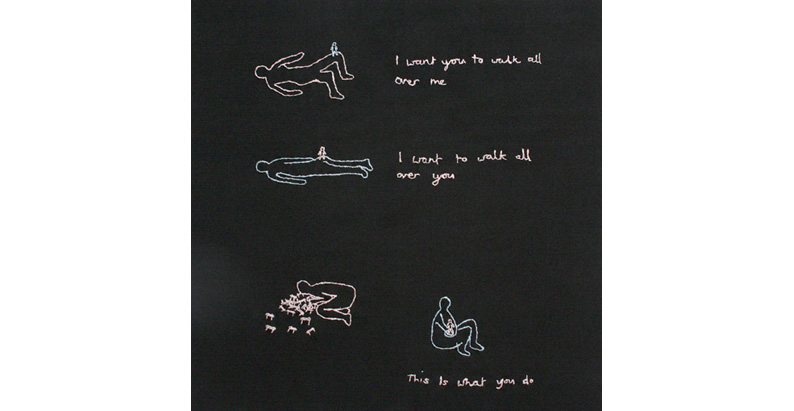 I want you to walk all
over me
I want to walk all
over you
This Is what you do